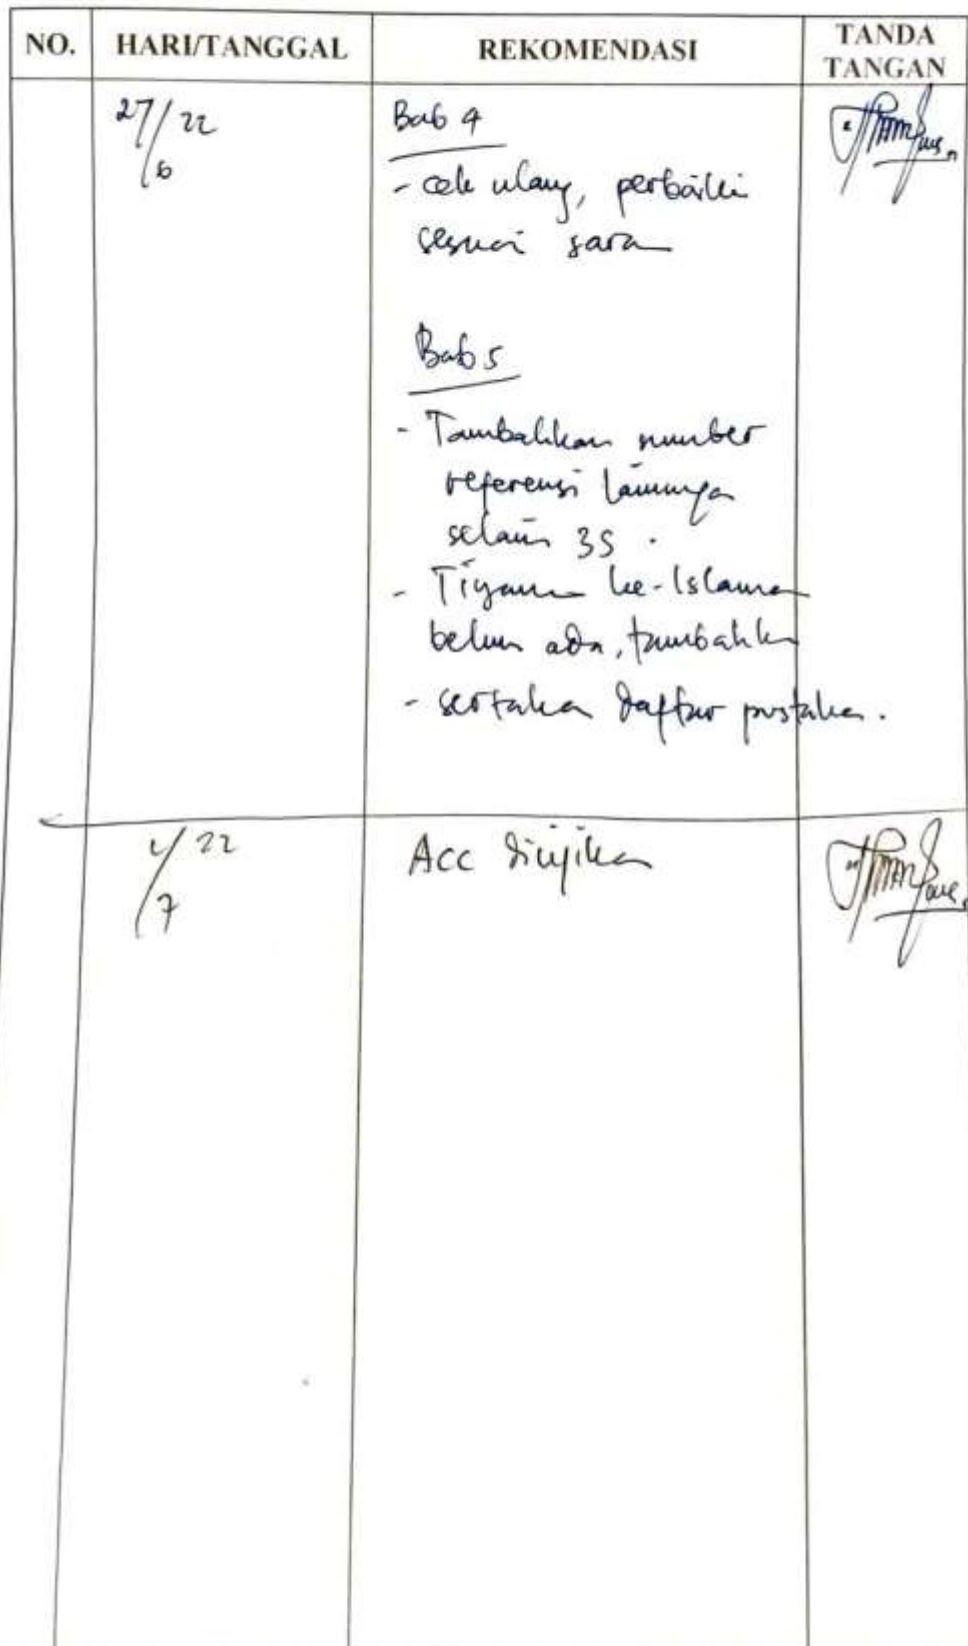 NO. HARI/TANGGAL REKOMENDASI TANDA TANGAN
27/6 22 Bab 4
- cek ulang, perbaiki
sesuai saran
Bab 5
- Tambahkan sumber
referensi lainnya
selain 3S.
- Tinjauan ke-Islaman
belum ada, tambahkan
- sertakan daftar pustaka.
/7 22 Acc diujikan